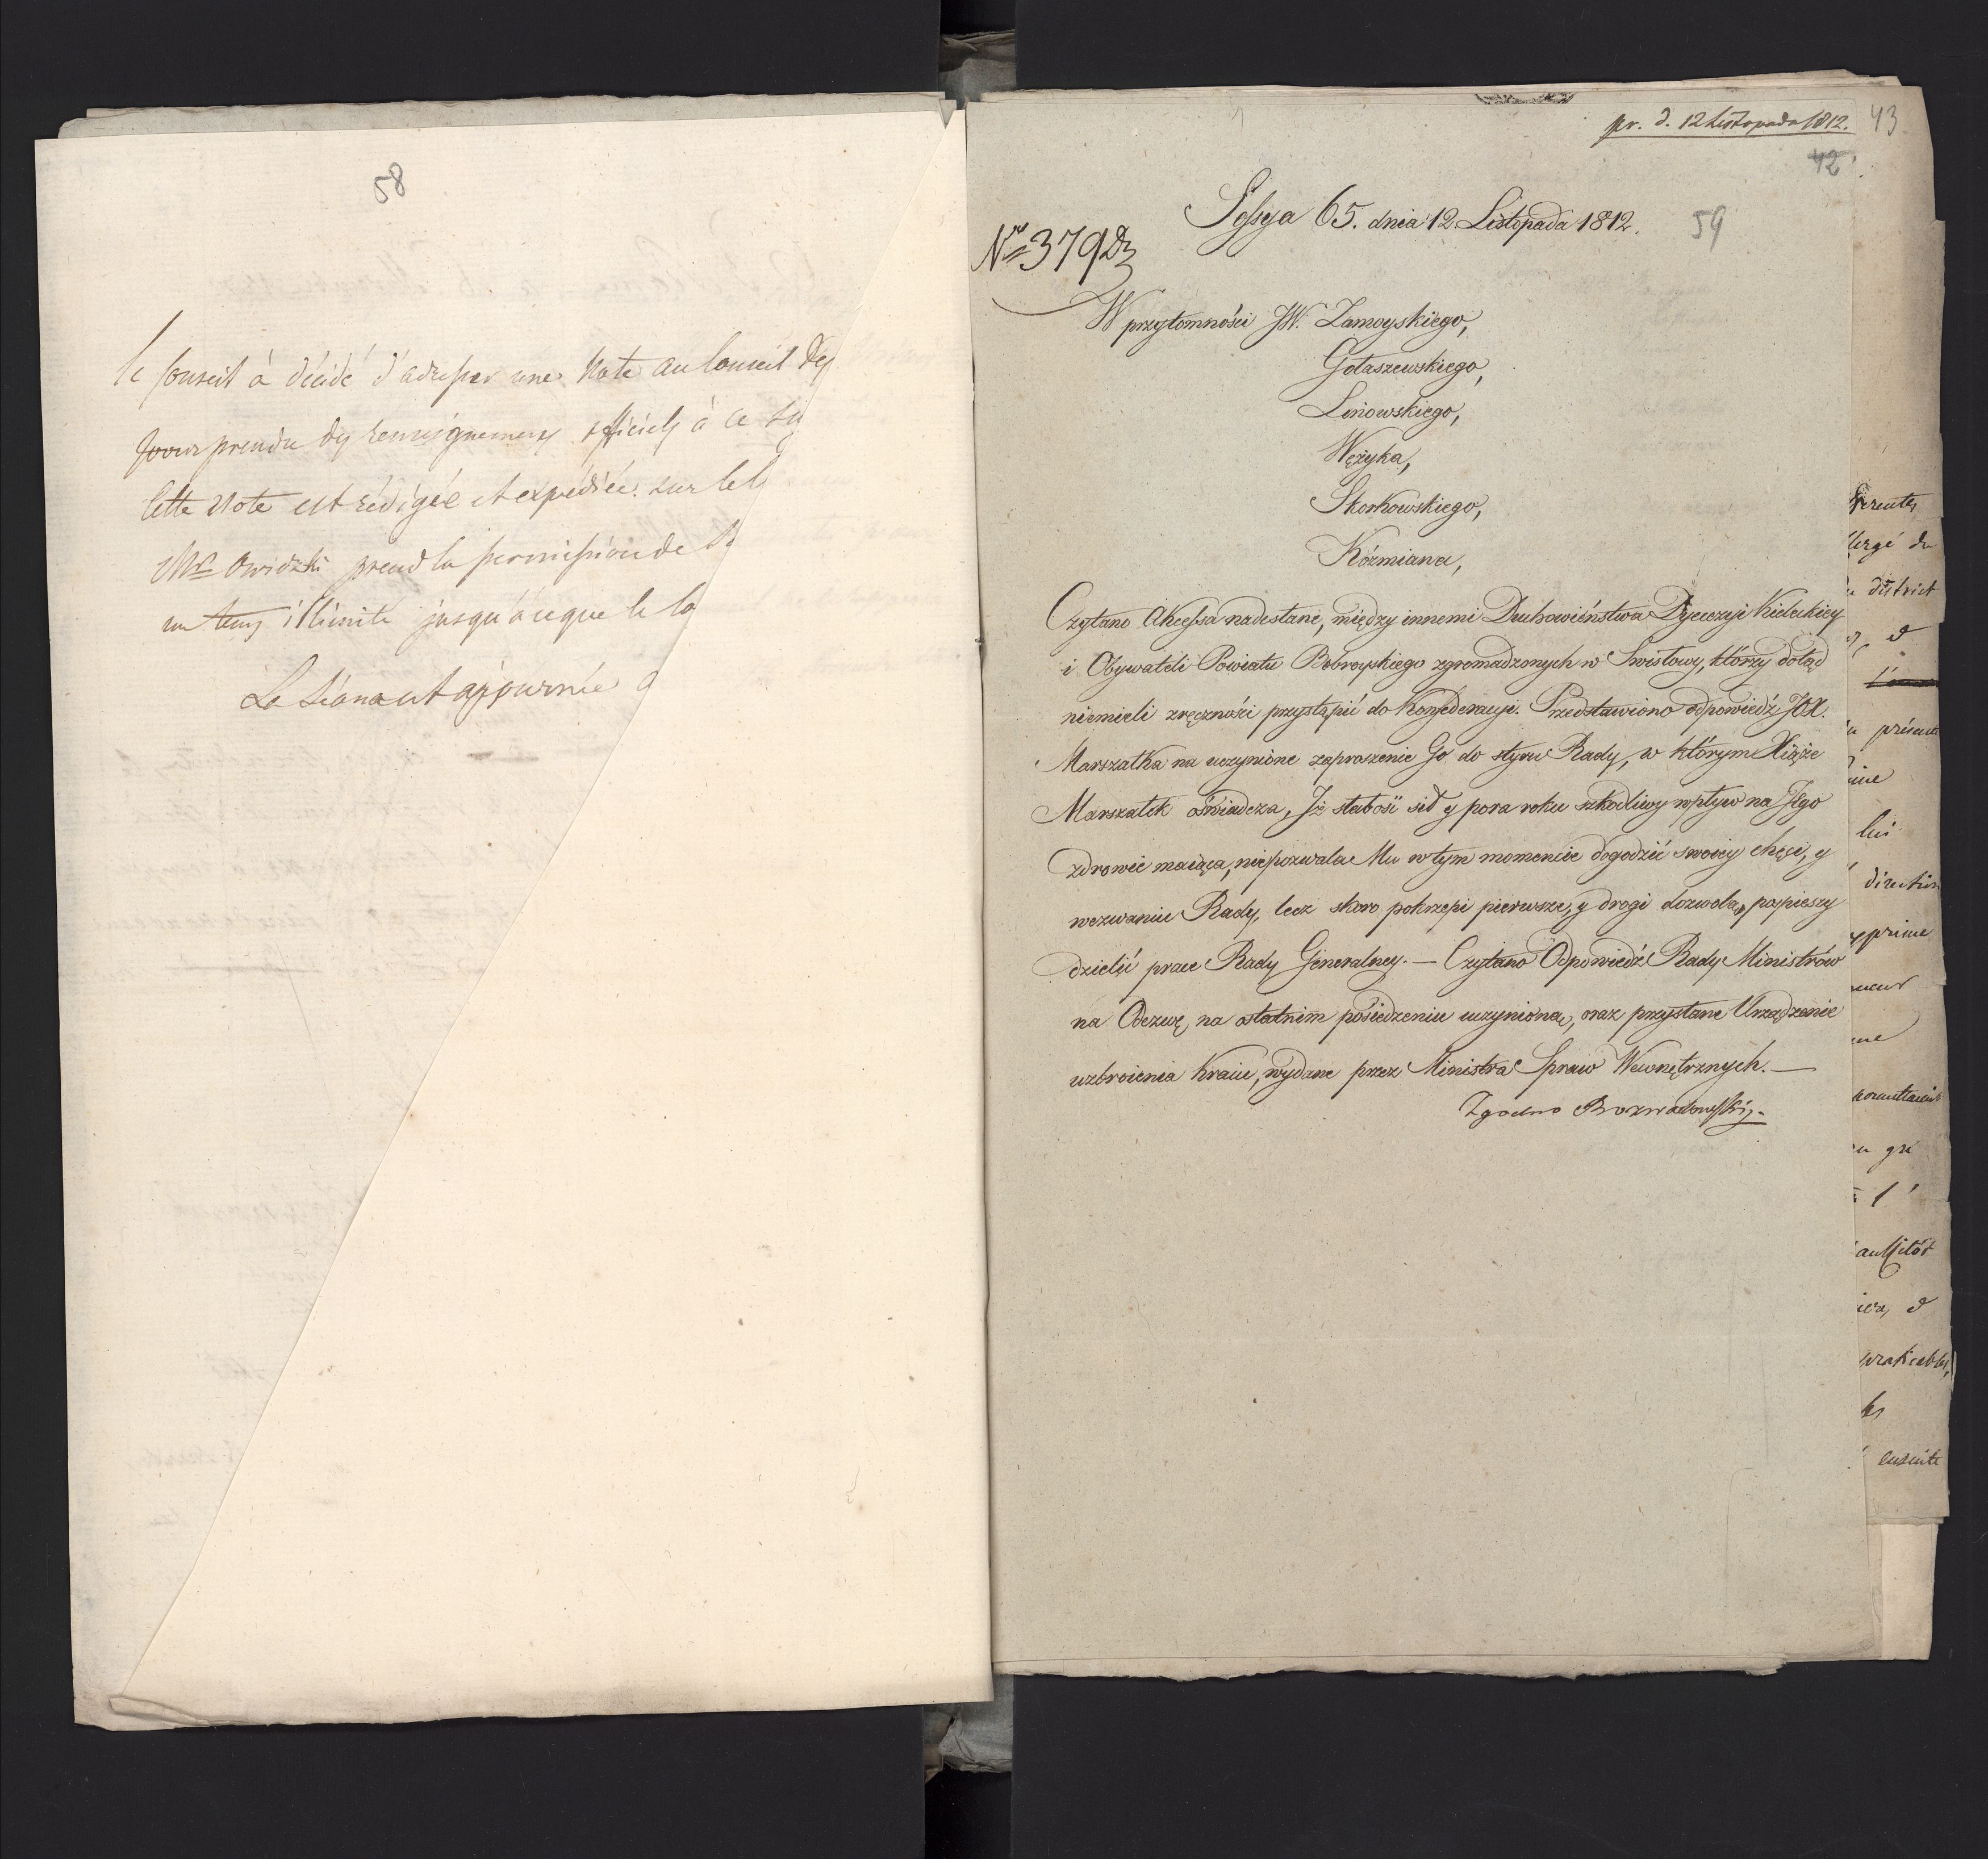 58
le Conseil à décidé d'adresser une Note au Conseil des
pour prendre des renseignemens officiels à ce su
Cette Note est rédigée et expédiée sur le
Mr Owidzki prend la permission de
un tems illimité jusqu'à ce que le
La séance est ajournée
pr. d. 12 Listopada 1812.
43
42
Sessya 65. dnia 12 Listopada 1812.
59
Nro 379
W przytomności JW. Zamoyskiego,
Gołaszewskiego,
Linowskiego,
Wężyka,
Skorkowskiego,
Koźmiana,
Czytano Akcessa nadesłane, między innemi Duchowieństwa Dyecezyi Kieleckiey
i Obywateli Powiatu Bobroyskiego zgromadzonych w Swisłowy, którzy dotąd
niemieli zręczności przystąpić do Konfederacyi. Przedstawiono odpowiedź JOX.
Marszałka na uczynione zaproszenie Go do steru Rady, w którym Xiąże
Marszałek oświadcza, Iż słabość sił y pora roku szkodliwy wpływ na Jego
zdrowie maiąca, niepozwala Mu w tym momencie dogodzić swoiey chęci, y
wezwaniu Rady, lecz skoro pokrzepi pierwsze, y drogi dozwolą, pospieszy
dzielić prace Rady Generalney. — Czytano Odpowiedź Rady Ministrów
na Odezwę na ostatnim posiedzeniu uczynioną, oraz przysłane Urządzenie
uzbroienia Kraiu, wydane przez Ministra Spraw Wewnętrznych. —
Zgodno Rozwadowski
district
lui
direction
prime
ensuite